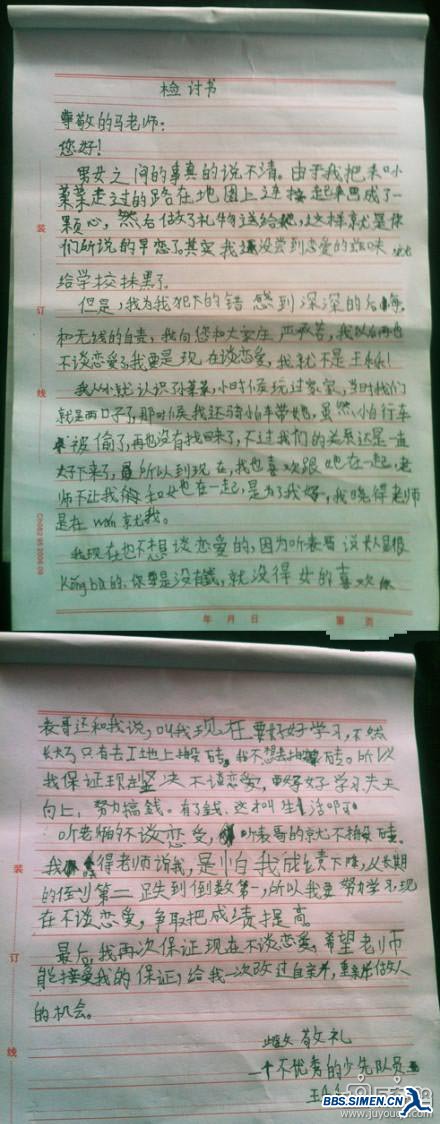 检讨书
尊敬的马老师:
您好!
男女之间的事真的说不清。由于我把和小
菜菜走过的路在地图上连接起来画成了一
颗心,然后做了礼物送给她,这样就是你
们所说的早恋了。其实我还没尝到恋爱的滋味,
给学校抹黑了。
但是,我为我犯下的错感到深深的后悔
和无线的自责,我向您和大家庄严承若,我以后再也
不谈恋爱了,我要是现在谈恋爱,我就不是王
我从小就认识孙菜菜,小时候玩过家家,当时我们
就是两口子了,那时候我还骑小白车带她,虽然小自行车
被偷了,再也没有找回来了,不过我们的关系还是一直
好下来了,所以到现在,我也喜欢跟她在一起,老
师不让我和她在一起,是为了我好,我晓得老师
是在wan救我。
我现在也不想谈恋爱的,因为听表哥说长大是很
kǒng bu的,你要是没有钱,就没得女的喜欢你
年 月 日 第 页
表哥还和我说,叫我现在要好好学习,不然
长大了只有去工地上搬砖,我不想去搬砖。所以
我保证现在坚决不谈恋爱,要好好学习天天
向上,努力搞钱。有了钱,这才叫生活
听老师的不谈恋爱,听表哥的就不搬砖。
我晓得老师说我,是怕我成绩下降,从长期
的倒数第二跌到倒数第一,所以我要努力学习,现
在不谈恋爱,争取把成绩提高。
最后,我再次保证现在不谈恋爱,希望老师
能接受我的保证,给我一次改过自新,重新做人
的机会。
敬礼
一个不优秀的少先队员
王
装
订
线
装
订
线
BBS.SIMEN.CN
www.juyouqu.com